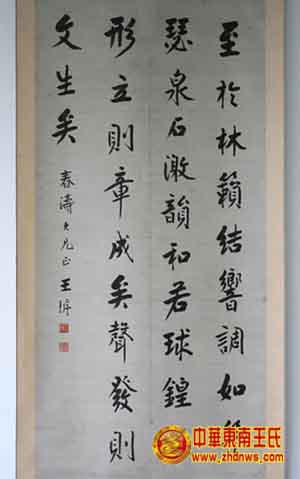 至於林籟結響調如
瑟泉石激韻和若球鍠
形立則章成矣聲發則
文生矣
春濤大兄正 王
中華東南王氏
www.zhdnws.com